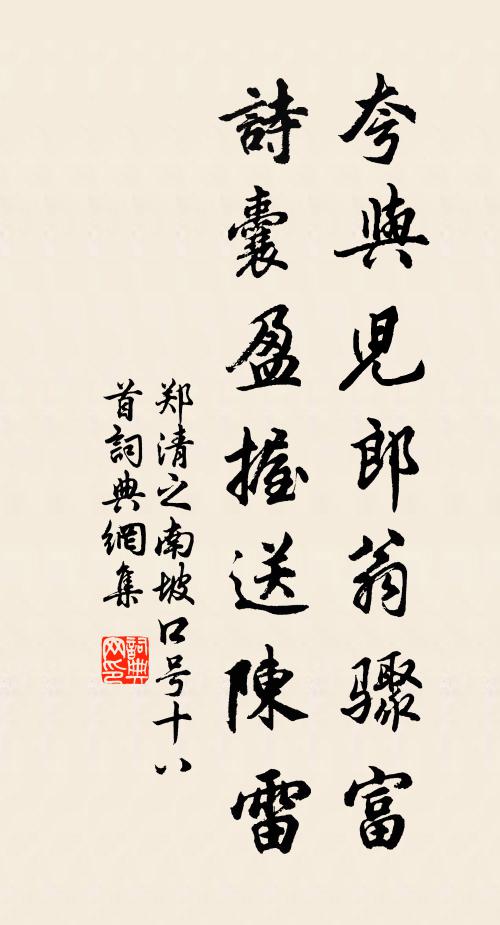 夸與児郎翁驟富
詩囊盈握送陳雷
郑清之南坡口号十八
首詞典網集
詞典
网印